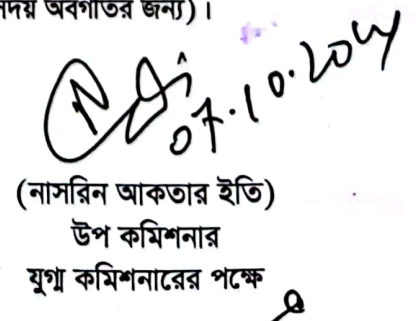 অবগতির জন্য)।
07.10.2024
(নাসরিন আকতার ইতি)
উপ কমিশনার
যুগ্ম কমিশনারের পক্ষে